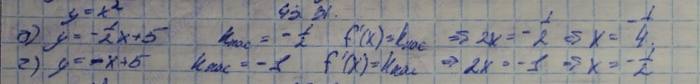 y = x² 43.31.
а) y = -½x+5 kкас = -½ f'(x) = kкас ⇒ 2x = -½ ⇒ x = -¼
г) y = -x+5 kкас = -1 f'(x) = kкас ⇒ 2x = -1 ⇒ x = -½